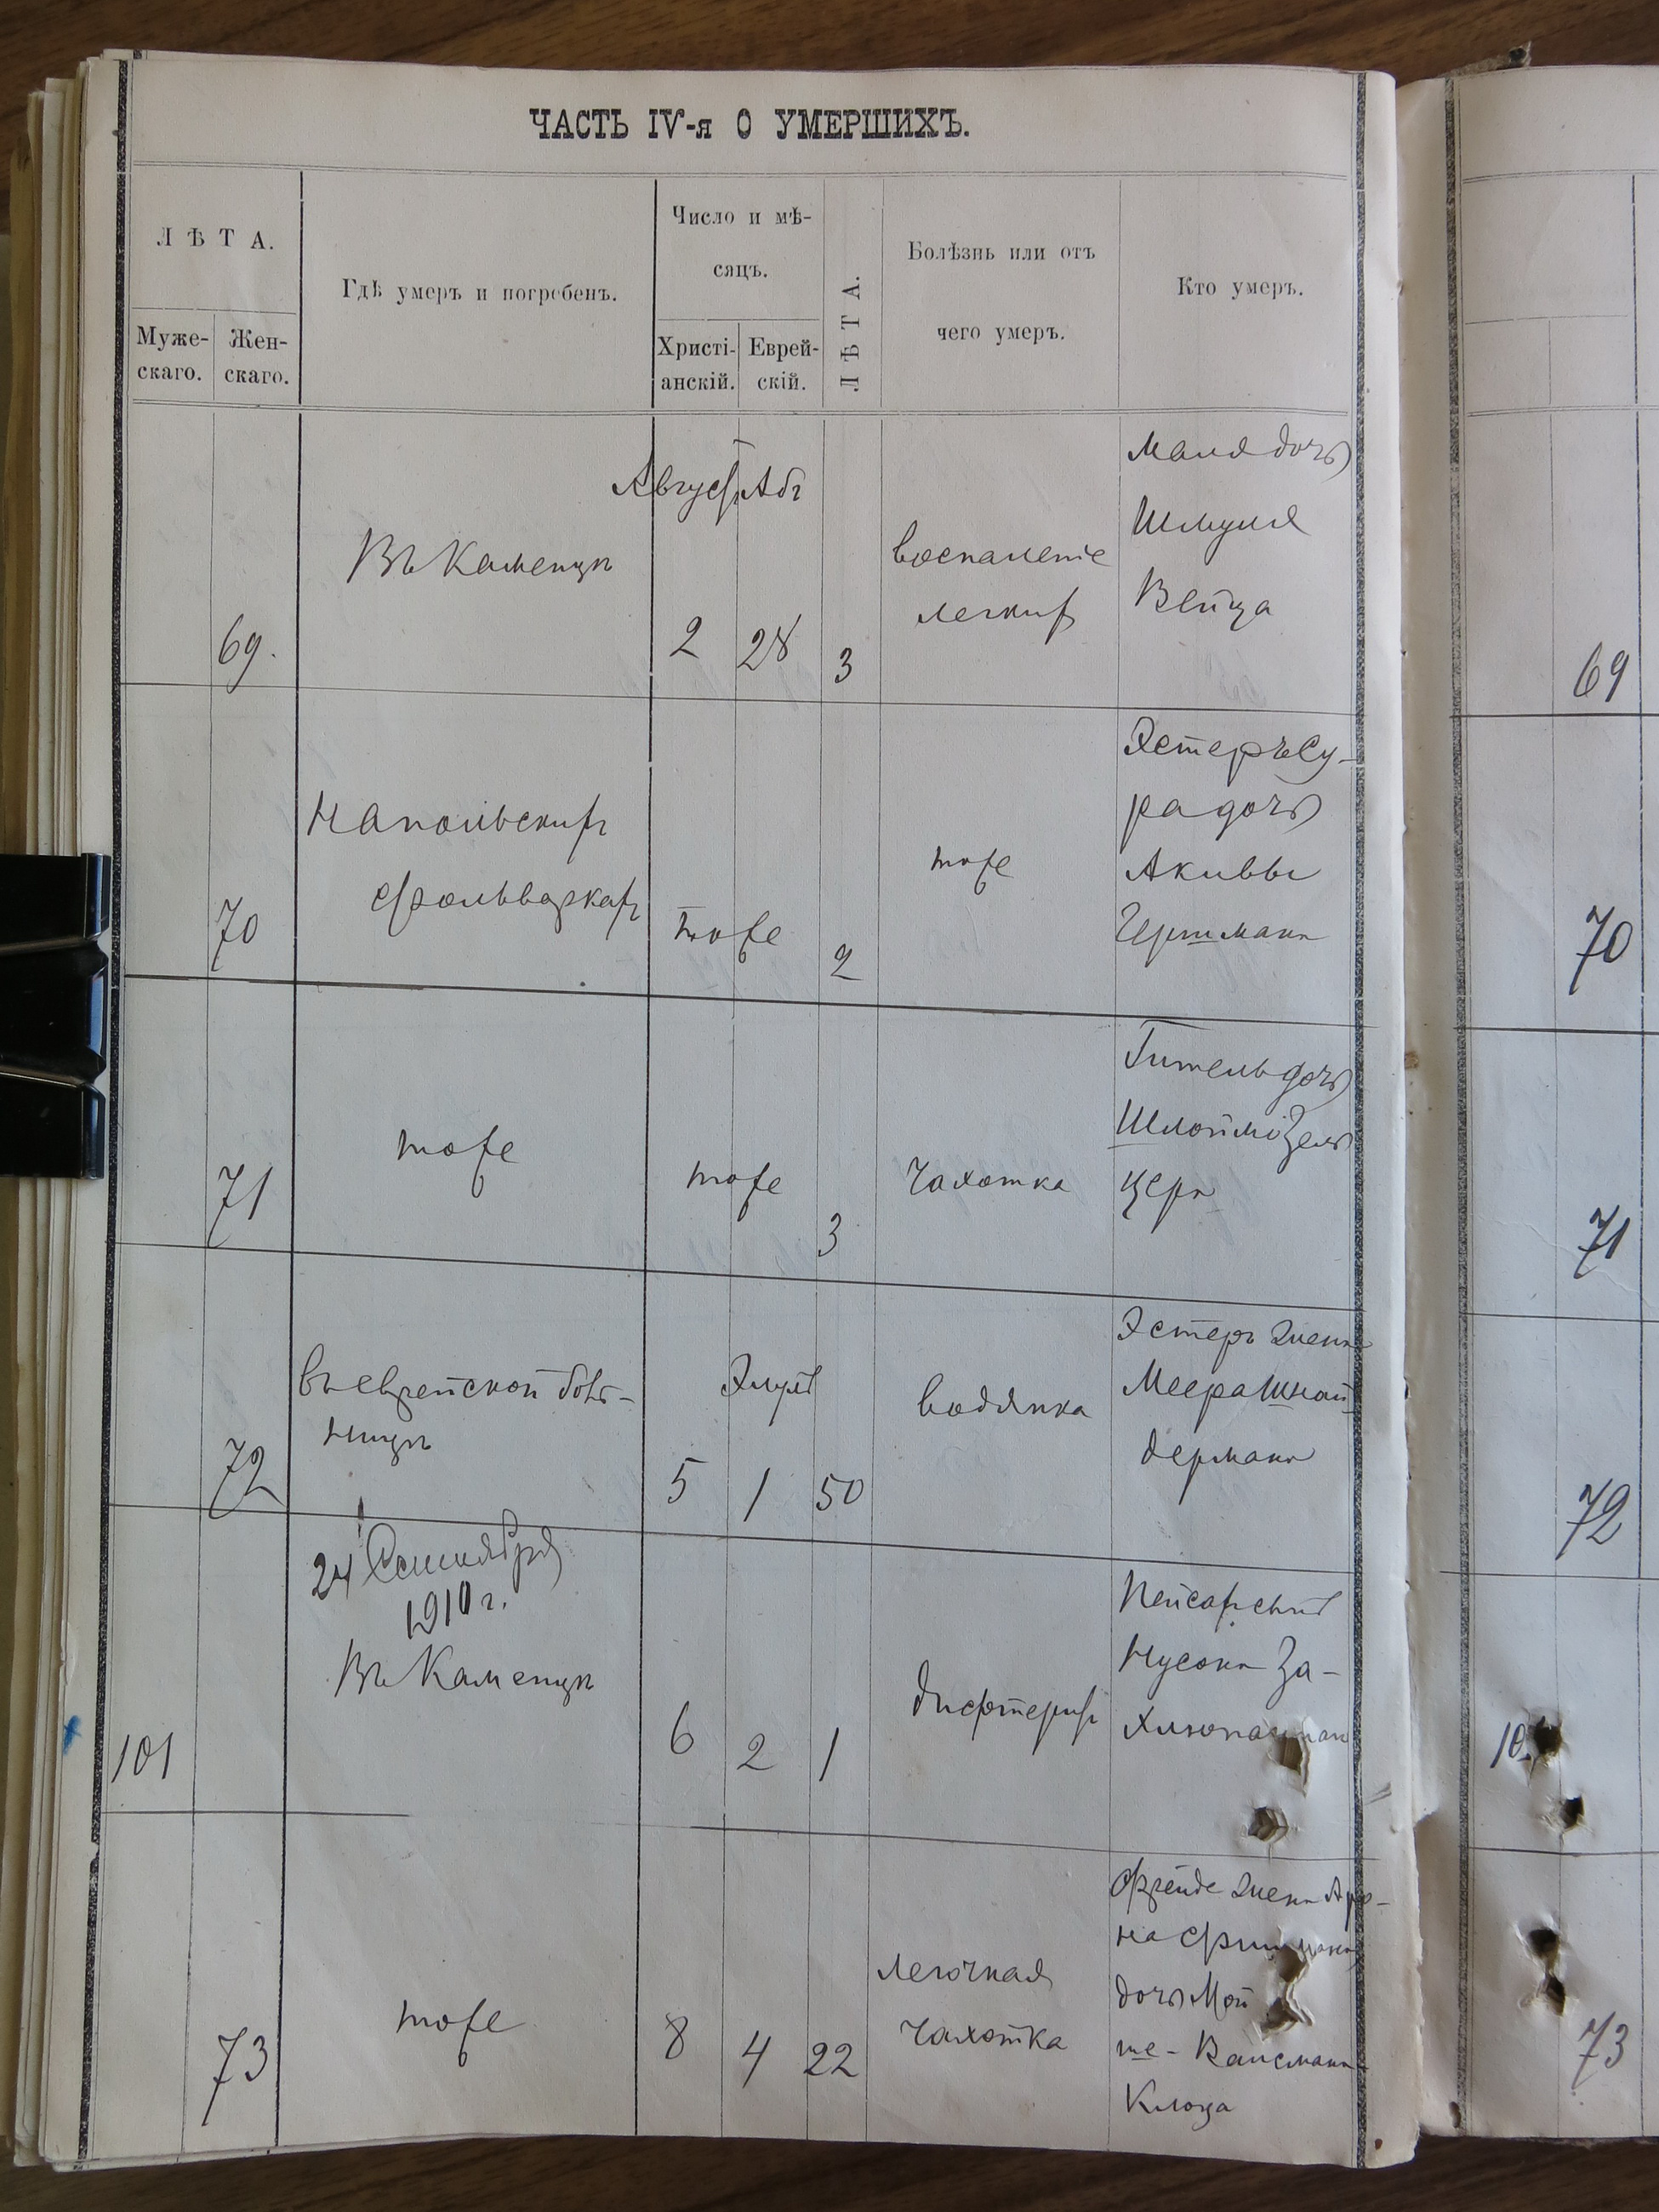 ЧАСТЬ IV-я О УМЕРШИХЪ.
ЛѢТА.
Муже-
скаго.
Жен-
скаго.
Гдѣ умеръ и погребенъ.
Число и мѣ-
сяцъ.
Христі-
анскій.
Еврей-
скій.
ЛѢТА.
Болѣзнь или отъ
чего умеръ.
Кто умеръ.
69.
Въ Каменцѣ
Август Абъ
2 28 3
воспаленіе
легкихъ
Маля дочь
Шмуля
Вейца
69
70
На польскихъ
фольваркахъ
тоже
2
тоже
Эстеръ Су-
ра дочь
Акивы
Гершманъ
70
71
тоже
тоже
3
чахотка
Гитель дочь
Шлоймы Зель
церъ
71
72
въ еврейской боль-
ницѣ
Элулъ
5 1 50
водянка
Эстеръ жена
Меера Шнай
дерманъ
72
101
24 Сентября
1910 г.
Въ Каменцѣ
6 2 1
дифтеритъ
Пейсахъ сынъ
Нусона За-
10
73
тоже
8 4 22
легочная
чахотка
Фрейде жена Аро-
на
дочь Мой
ше - Вайсманъ
Клоца
73